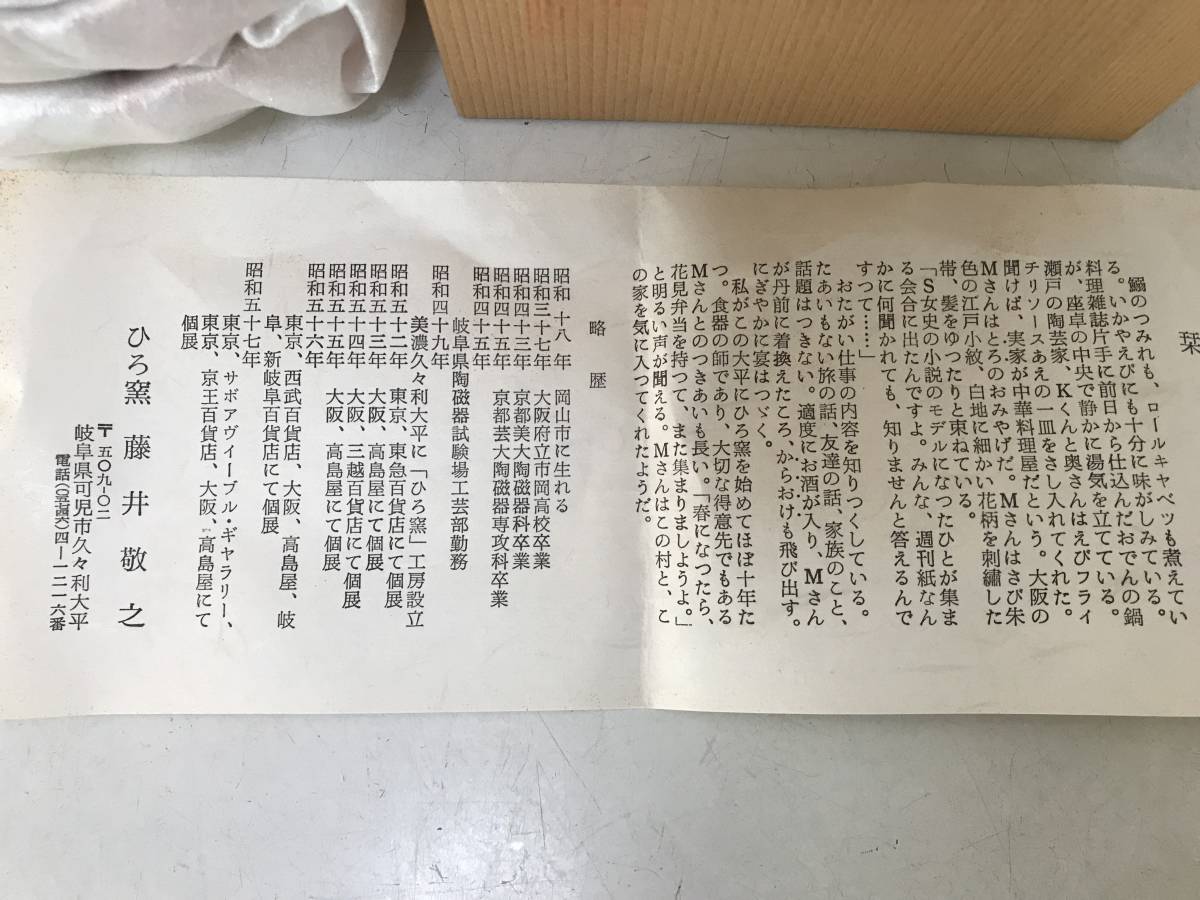 栞
鰯のつみれも、ロールキャベツも煮えてい
る。いかやえびにも十分に味がしみている。
料理雑誌片手に前日から仕込んだおでんの鍋
が、座卓の中央で静かに湯気を立てている。
瀬戸の陶芸家、Kくんと奥さんはえびフライ
チリソースあえの一皿をさし入れてくれた。
聞けば、実家が中華料理屋だという。大阪の
Mさんはとろのおみやげだ。Mさんはさび朱
色の江戸小紋、白地に細かい花柄を刺繍した
帯、髪をゆつたりと束ねている。
「S女史の小説のモデルになつたひとが集ま
る会合に出たんですよ。みんな、週刊紙なん
かに何聞かれても、知りませんと答えるんで
すつて……」
おたがい仕事の内容を知りつくしている。
たあいもない旅の話、友達の話、家族のこと、
話題はつきない。適度にお酒が入り、Mさん
が丹前に着換えたころ、からおけも飛び出す。
にぎやかに宴はつゞく。
私がこの大平にひろ窯を始めてほぼ十年た
つ。食器の師であり、大切な得意先でもある
Mさんとのつきあいも長い。「春になつたら、
花見弁当を持つて、また集まりましようよ。」
と明るい声が聞える。Mさんはこの村と、こ
の家を気に入つてくれたようだ。
略歴
昭和十八年 岡山市に生れる
昭和三十七年 大阪府立市岡高校卒業
昭和四十三年 京都美大陶磁器科卒業
昭和四十五年 京都芸大陶磁器専攻科卒業
岐阜県陶磁器試験場工芸部勤務
昭和四十九年
美濃久々利大平に「ひろ窯」工房設立
昭和五十二年 東京、東急百貨店にて個展
昭和五十三年 大阪、高島屋にて個展
昭和五十四年 大阪、三越百貨店にて個展
昭和五十五年 大阪、高島屋にて個展
昭和五十六年
東京、西武百貨店、大阪、高島屋、岐
阜、新岐阜百貨店にて個展
昭和五十七年
東京、サボアヴィーブル・ギャラリー、
東京、京王百貨店、大阪、高島屋にて
個展
ひろ窯 藤井敬之
〒五〇九-〇二
岐阜県可児市久々利大平
電話(〇五七四六)四-一二一六番